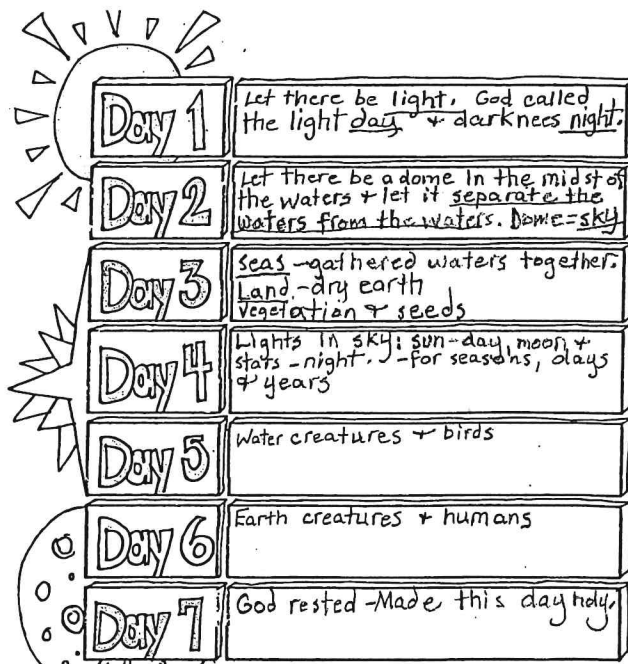 Day 1
Let there be light. God called
the light day + darknees night.
Day 2
Let there be a dome in the midst of
the waters + let it separate the
waters from the waters. Dome=sky
Day 3
seas -gathered waters together.
Land -dry earth
vegetation + seeds
Day 4
Lights in sky: sun-day, moon +
stats -night. -for seasons, days
+ years
Day 5
Water creatures + birds
Day 6
Earth creatures + humans
Day 7
God rested -Made this day holy.